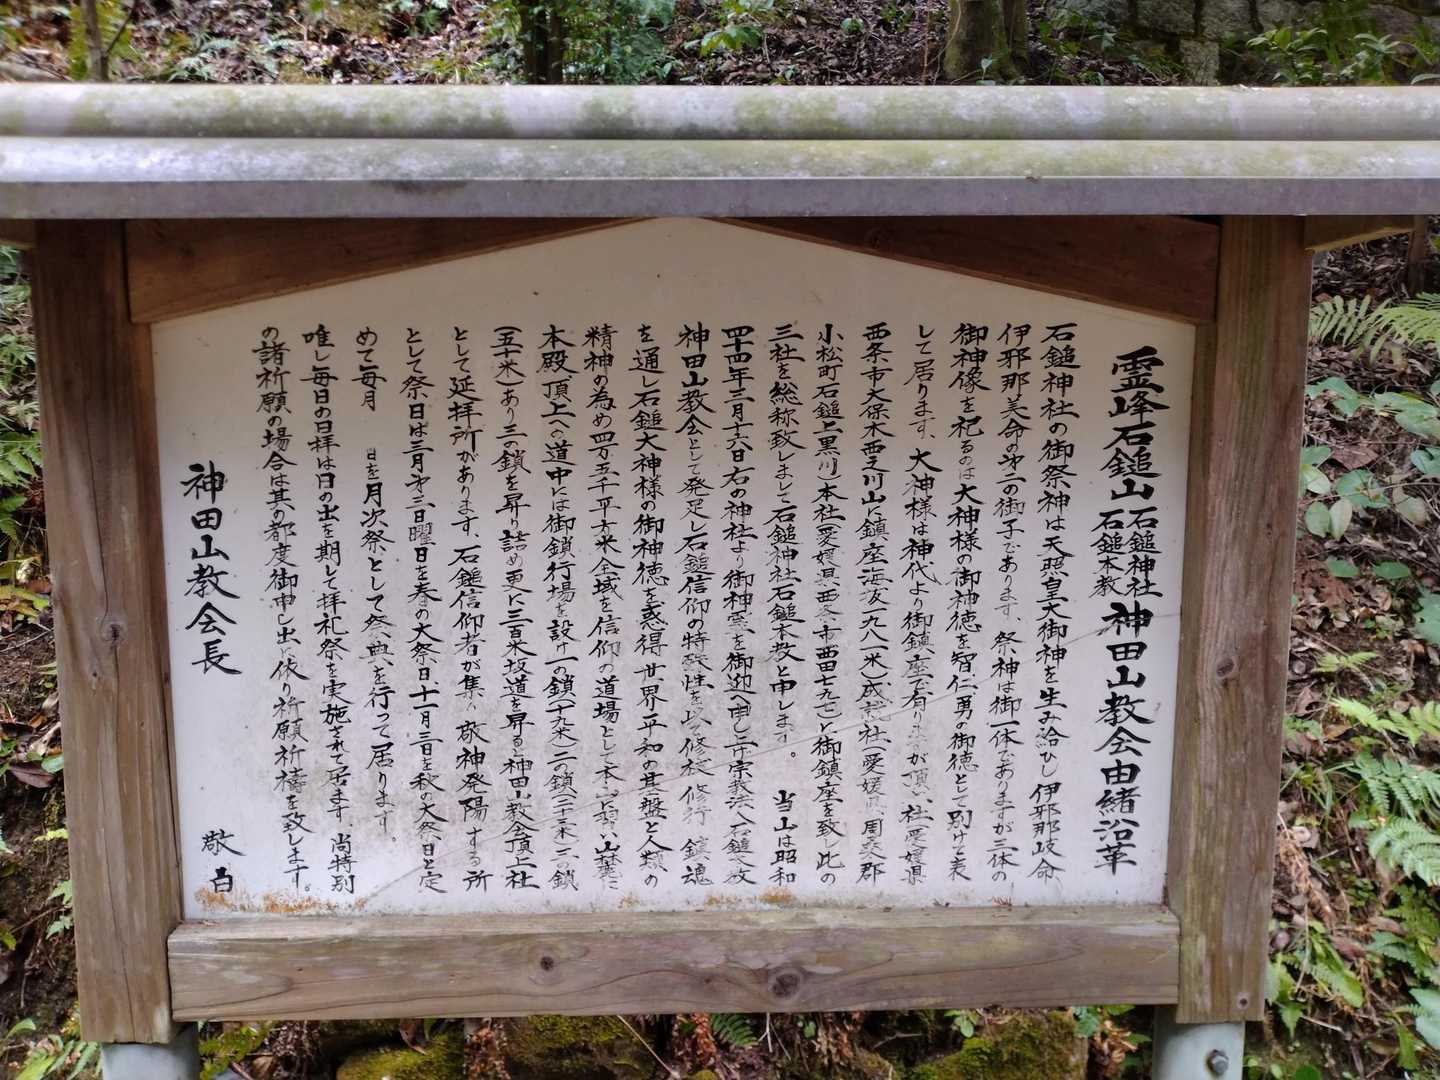 霊峰石鎚山 石鎚神社 石鎚本教 神田山教会由緒沿革
石鎚神社の御祭神は天照皇大御神を生み給ひし伊邪那岐命
伊邪那美命の第二の御子であります、祭神は御一体でありますが三体の
御神像を祀るのは大神様の御神徳を智仁勇の御徳として別けて表
して居ります、大神様は神代より御鎮座で有りますが頂い社(愛媛県
西条市大保木西之川山に鎮座海抜一九八一米)成就社(愛媛県周桑郡
小松町石鎚上黒川)本社(愛媛県西条市西田七九七)に御鎮座を致し此の
三社を総称致しまして石鎚神社石鎚本教と申します。 当山は昭和
四十四年三月十六日右の神社より御神霊を御迎え申し 宗教法人石鎚本教
神田山教会として発足し石鎚信仰の特殊性を以て修校 修行 鎮魂
を通し石鎚大神様の御神徳を惑得世界平和の基盤と人類の
精神の為め四万五千平方米全域を信仰の道場として本山に習い山麓に
本殿、頂上への道中には御鎖行場を設け一の鎖(十九米)二の鎖(二十三米)三の鎖
(五十米)あり三の鎖を昇り詰め更に三百米坂道を昇ると神田山教会頂上社
として延拝所があります、石鎚信仰者が集い敬神発陽する所
として祭日は三月第三日曜日を春の大祭日、十一月三日を秋の大祭日と定
めて毎月 日を月次祭として祭典を行って居ります。
唯し毎日の日拝は日の出を期して拝礼祭を実施されて居ます、尚特別
の諸祈願の場合は其の都度御申し出に依り祈願祈禱を致します。
神田山教会長 敬白